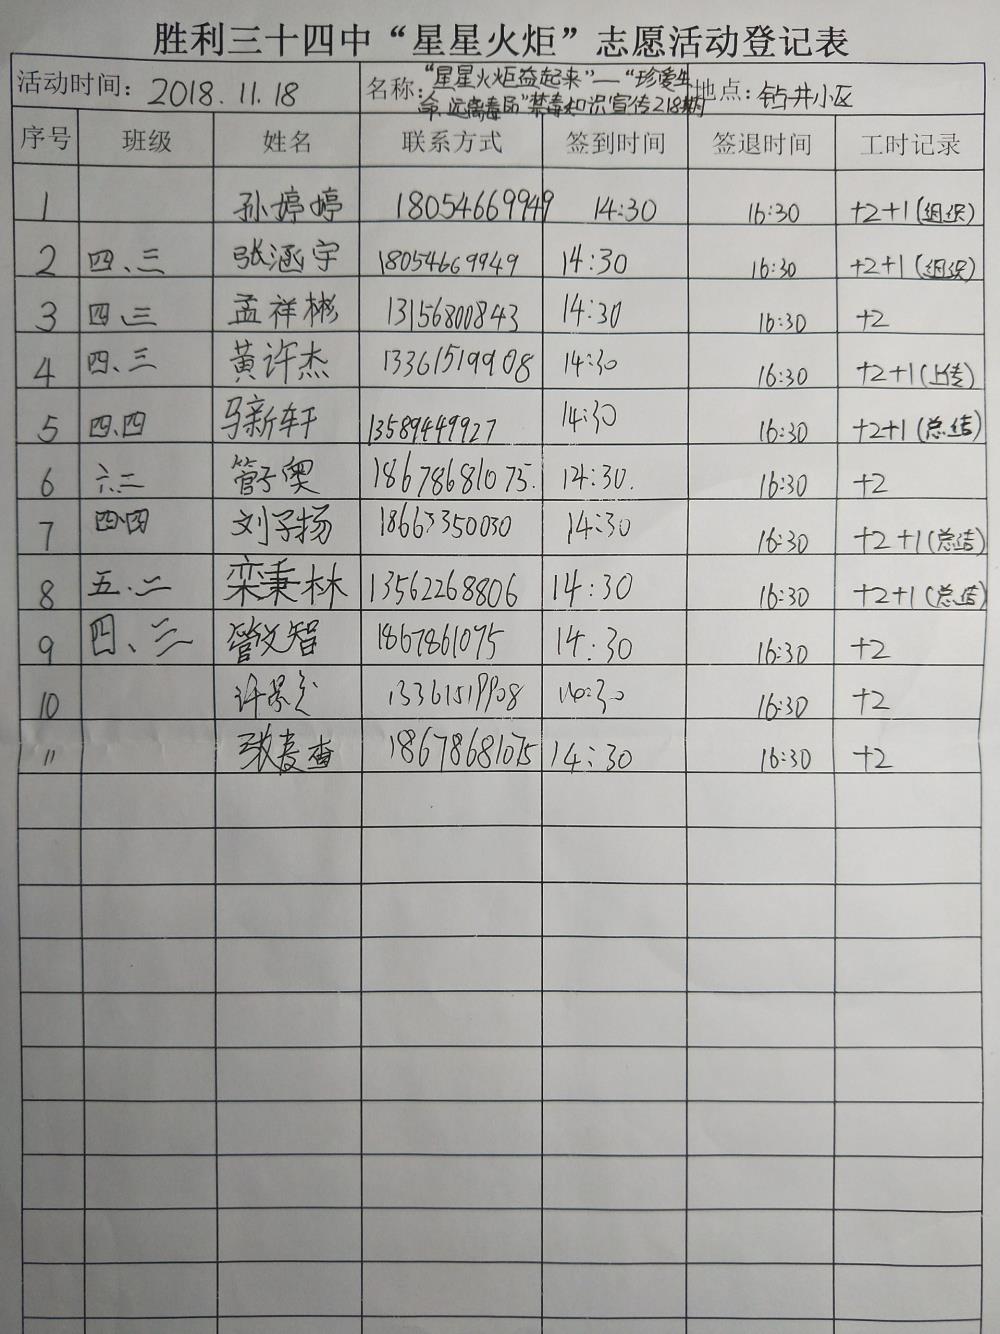 胜利三十四中“星星火炬”志愿活动登记表
活动时间：2018.11.18 名称：“星星火炬益起来”—“珍爱生命、远离毒品”禁毒知识宣传218期 地点：钻井小区
序号 班级 姓名 联系方式 签到时间 签退时间 工时记录
1 孙婷婷 18054669949 14:30 16:30 +2+1(组织)
2 四、三 张涵宇 18054669949 14:30 16:30 +2+1(组织)
3 四、三 孟祥彬 13156800843 14:30 16:30 +2
4 四、三 黄许杰 13361519908 14:30 16:30 +2+1(上传)
5 四、四 马新轩 13589449927 14:30 16:30 +2+1(总结)
6 六、二 管子奥 18678681075. 14:30. 16:30 +2
7 四、四 刘子扬 18663350030 14:30 16:30 +2+1(总结)
8 五、二 栾秉林 13562268806 14:30 16:30 +2+1(总结)
9 四、三 管文智 1867861075 14:30 16:30 +2
10 13361519908 14:30 16:30 +2
11 18678681075 14:30 16:30 +2